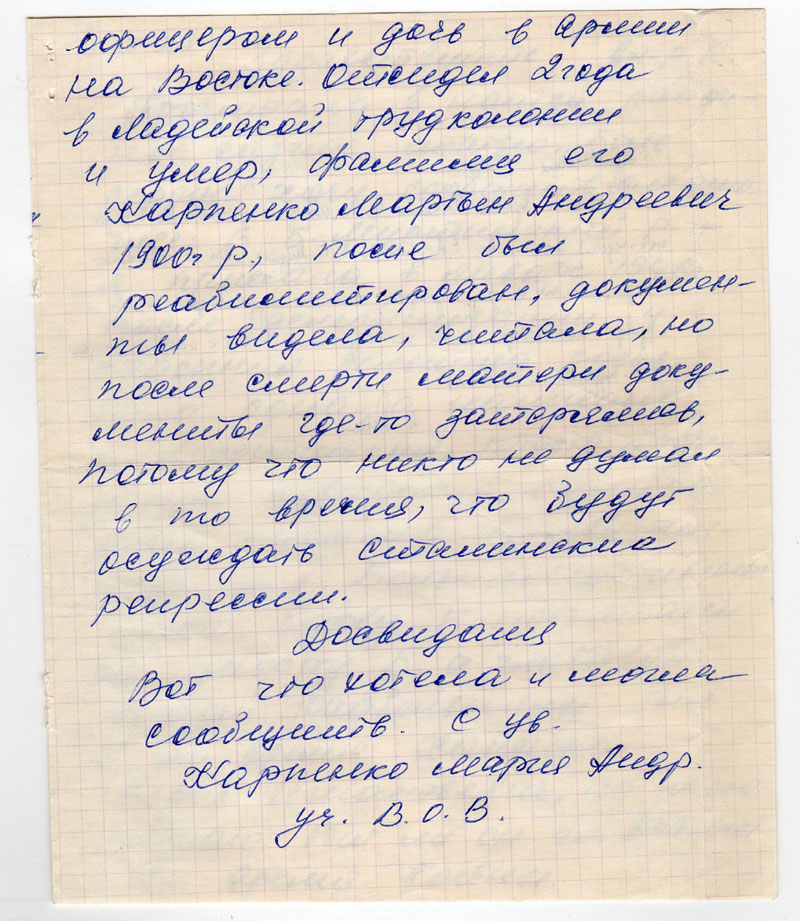 офицером и дочь в Армии
на Востоке. Отсидел 2 года
в Ладейской трудколонии
и умер, фамилия его
Карпенко Мартын Андреевич
1900 г р., после был
реабилитирован, докумен-
ты видела, читала, но
после смерти матери доку-
менты где-то затерялись,
потому что никто не думал
в то время, что будут
осуждать Сталинские
репрессии.
Досвидания
Вот что хотела и могла
сообщить. С ув.
Карпенко Мария Андр.
уч. В.О.В.